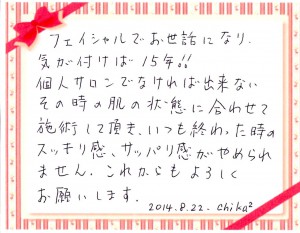 フェイシャルでお世話になり、
気が付けば15年!!
個人サロンでなければ出来ない
その時の肌の状態に合わせて
施術して頂き、いつも終わった時の
スッキリ感、サッパリ感がやめられ
ません。これからもよろしく
お願いします。
2014.8.22- chika²